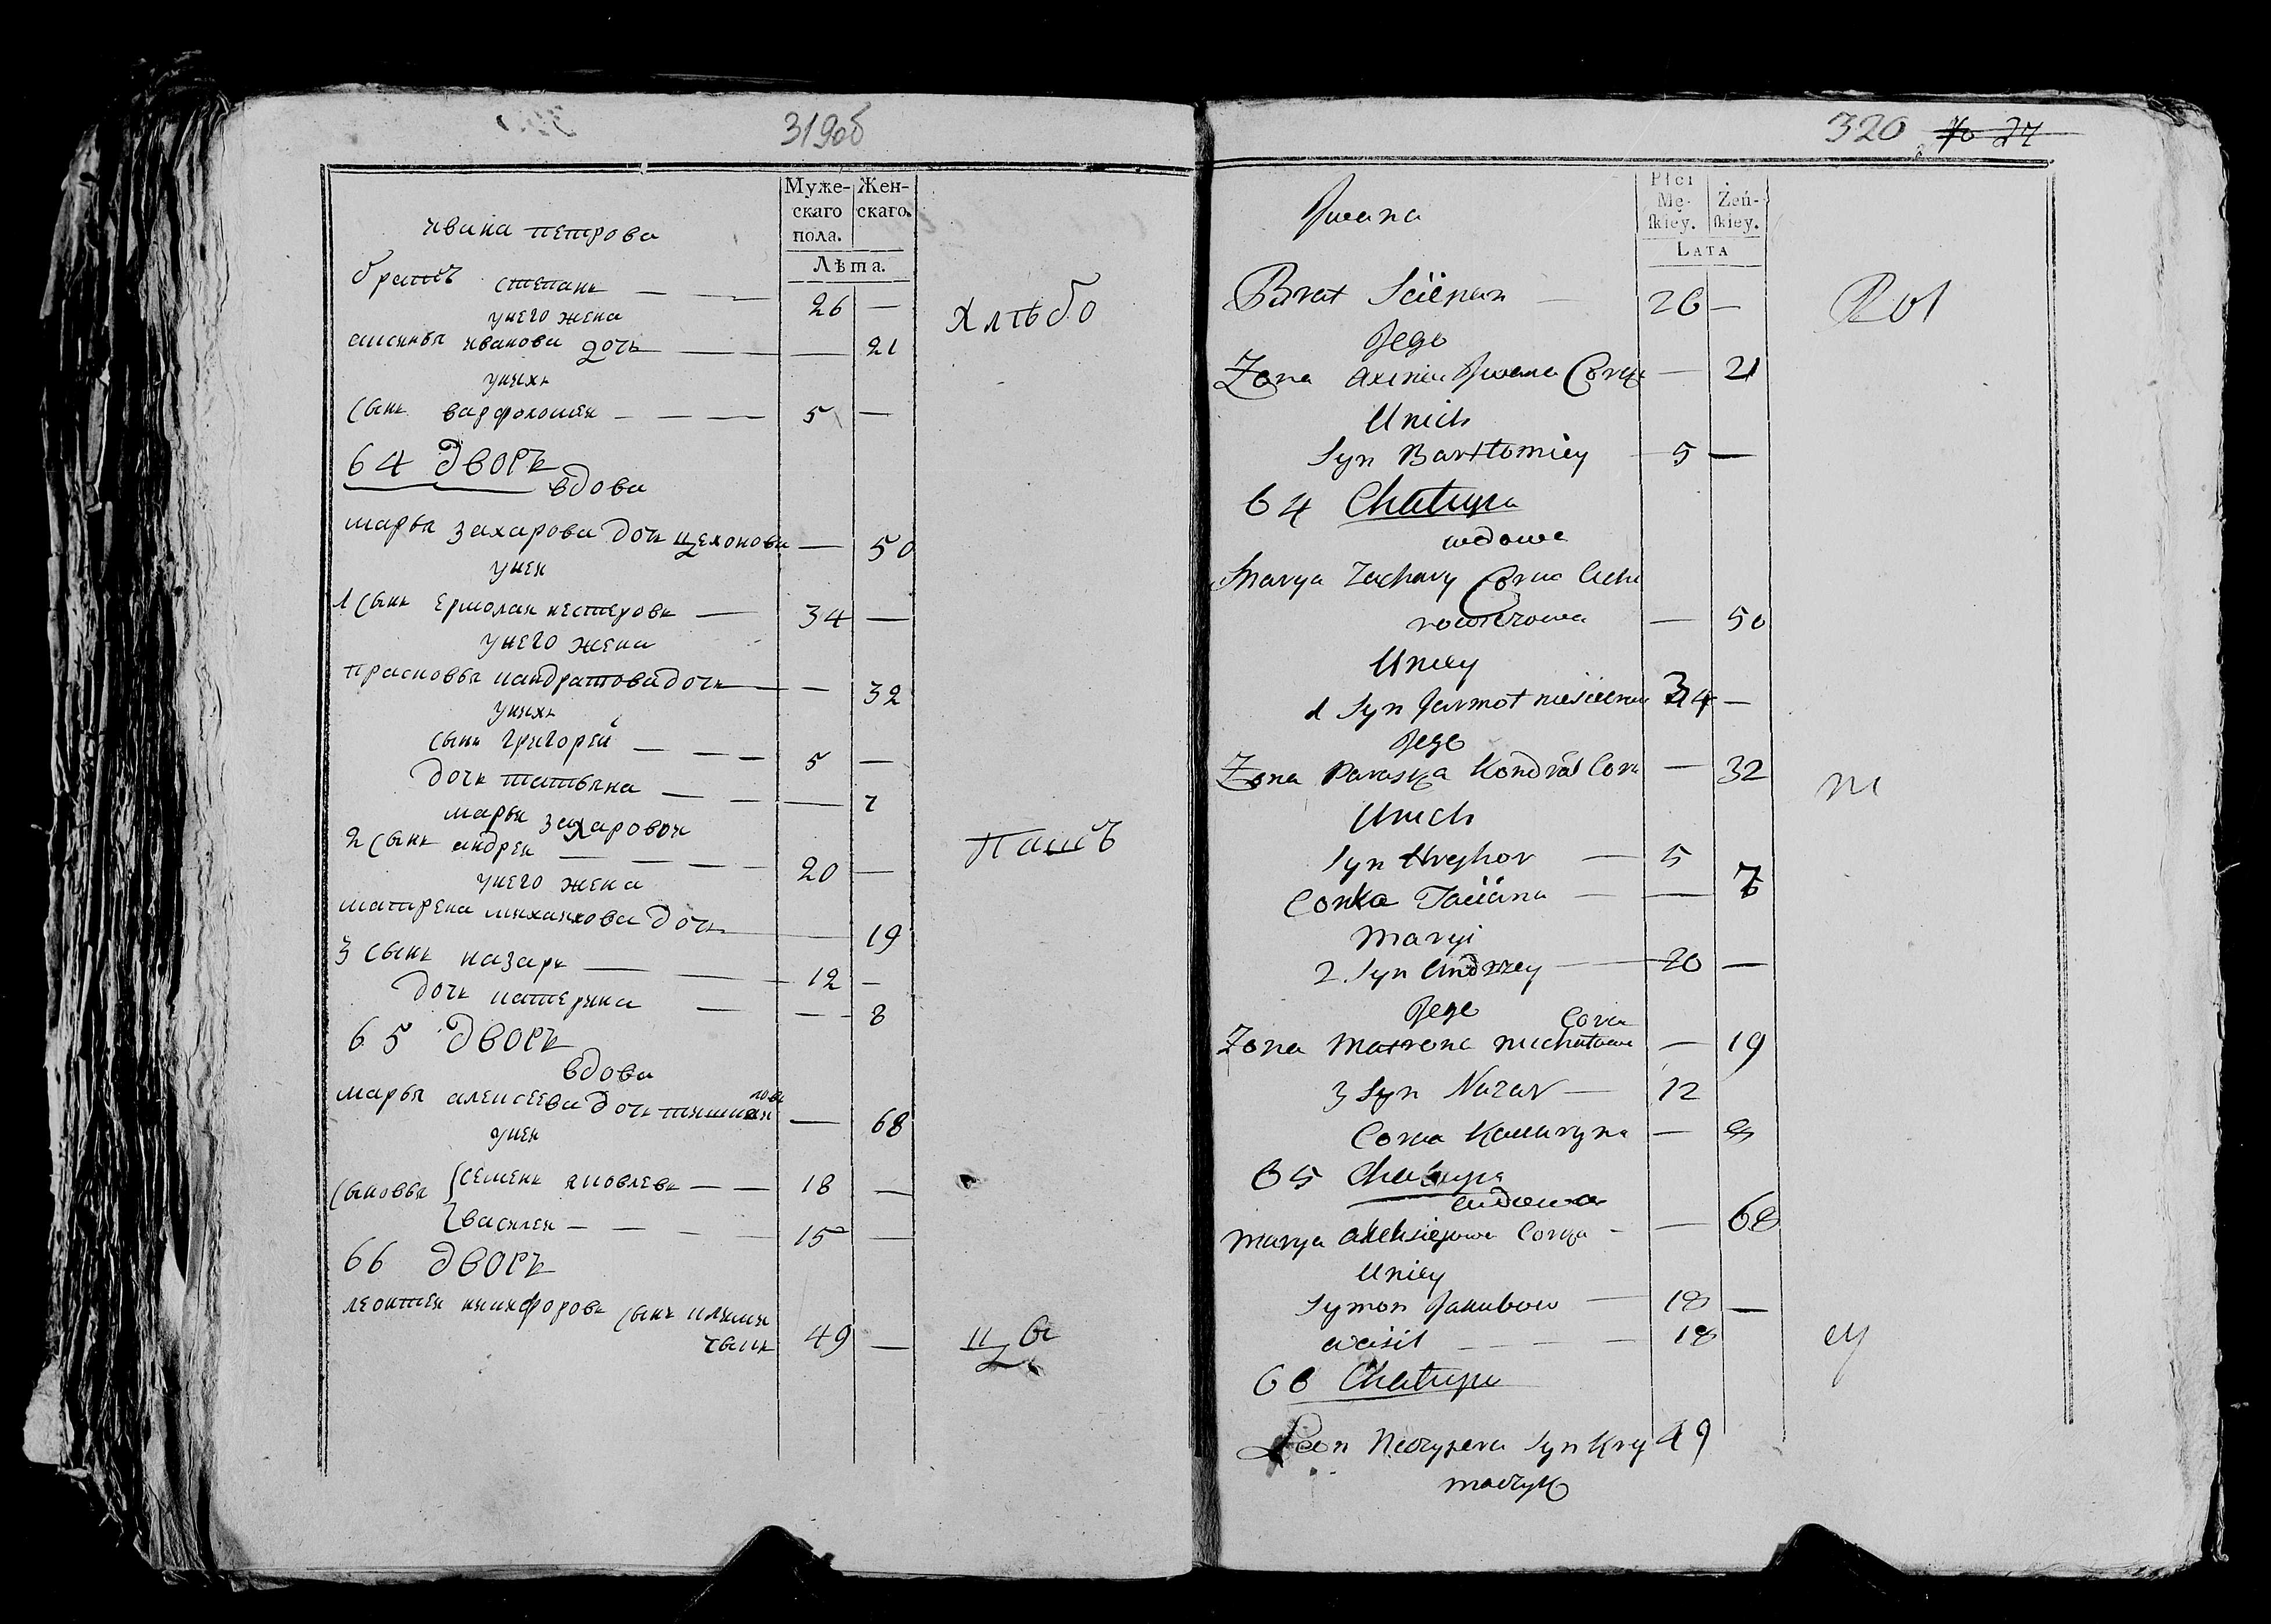 319об
Муже-
скаго
пола.
Жен-
скаго.
Лѣта.
ивана петрова
братъ степанъ — 26 —
унего жена
аксинья иванова дочь — 21
унихъ
сынъ варфоломей — 5 —
хлѣбо
64 дворъ
вдова
марья захарова дочь — 50
унея
1 сынъ ермолай нестеровъ — 34 —
унего жена
прасковья кандратова дочь — 32
унихъ
сынъ григорей — 5 —
дочь татьяна — 7
марьи захаровой
2 сынъ андрей — 20 —
пашъ
унего жена
матрена михайлова дочь — 19
3 сынъ назаръ — 12 —
дочь катерина — 8
65 дворъ
вдова
марья алексеева дочь — 68
унея
сыновья семенъ яковлевъ — 18 —
василей — 15 —
66 дворъ
леонтей никифоровъ сынъ клими
чыкъ 49 —
ца
320
Płci
Mę-
skiey.
Żeń-
skiey.
LATA
Jwana
Brat Sciepan — 26 —
Rol
Jego
Zona Axinia Jwana Corka — 21
Unich
Syn Bartłomiey — 5 —
64 Chałupa
wdowa
Marya Zachary Corka
— 50
Uniey
1 Syn Jarmoł 34 —
Jego
Zona Paraska Kondrat Cor — 32
ni
Unich
Syn Hryhor — 5
Corka Taciana — 7
Maryi
2 Syn Andrzey — 20 —
Jego Corka
Zona Matrona Michałowa — 19
3 Syn Nazar — 12
Corka Kataryna — 8
65 Chałupa
wdowa
Marya Aleksiejowa Corka — 68
Uniey
Symon Jakubow — 18 —
Wasil — 18
cy
66 Chałupa
Leon Syn Kry 49
maczyk